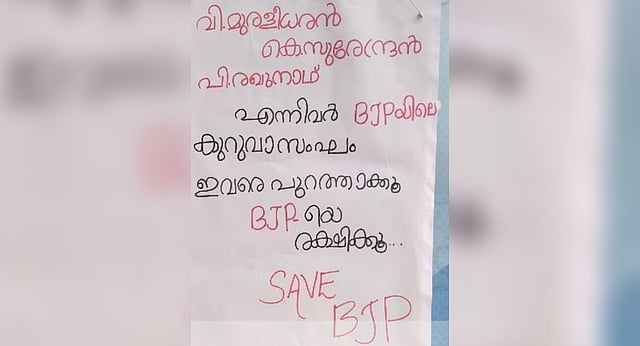 വി.മുരളീധരൻ
കെ.സുരേന്ദ്രൻ
പി.രഘുനാഥ്
എന്നിവർ BJPയിലെ
കുറുവാസംഘം
ഇവരെ പുറത്താക്കൂ
BJP-യെ
രക്ഷിക്കൂ...
SAVE
BJP